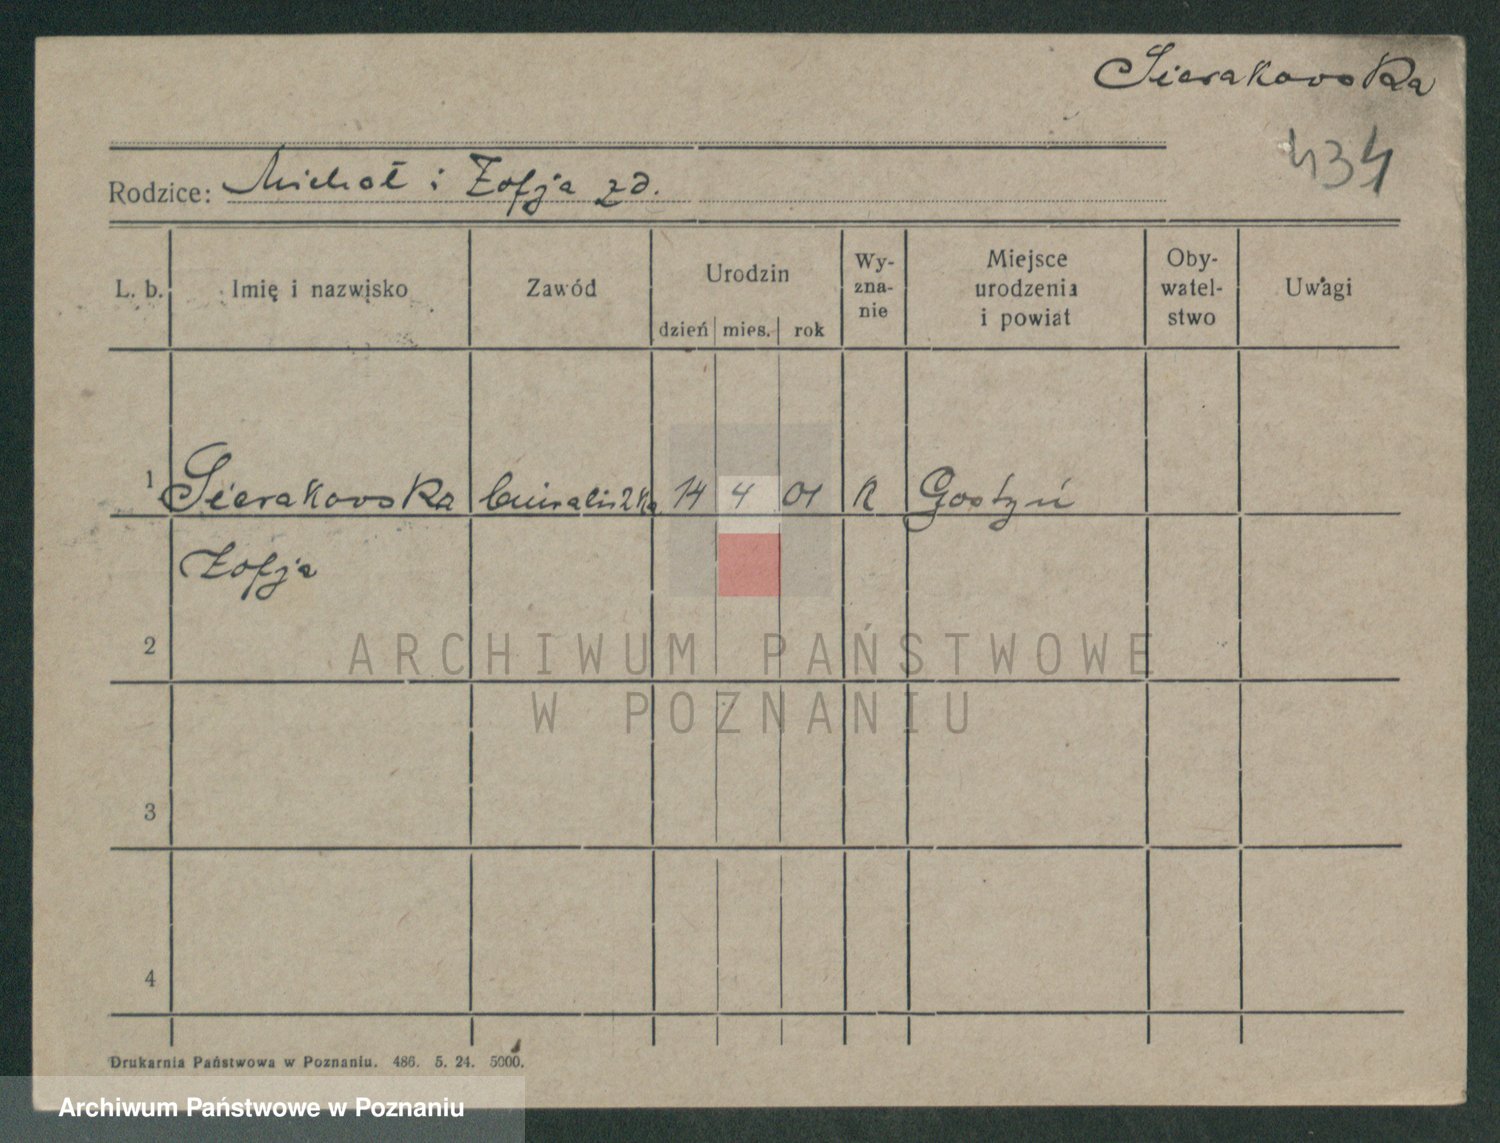 Sierakowska
434
Rodzice: Michał i Zofja zd.
L. b. Imię i nazwisko Zawód Urodzin dzień mies. rok Wy-zna-nie Miejsce urodzenia i powiat Oby-watel-stwo Uwagi
1 Sierakowska 14 4 01 R Gostyń
Zofja
2
3
4
ARCHIWUM PAŃSTWOWE
W POZNANIU
Drukarnia Państwowa w Poznaniu. 486. 5. 24. 5000.
Archiwum Państwowe w Poznaniu